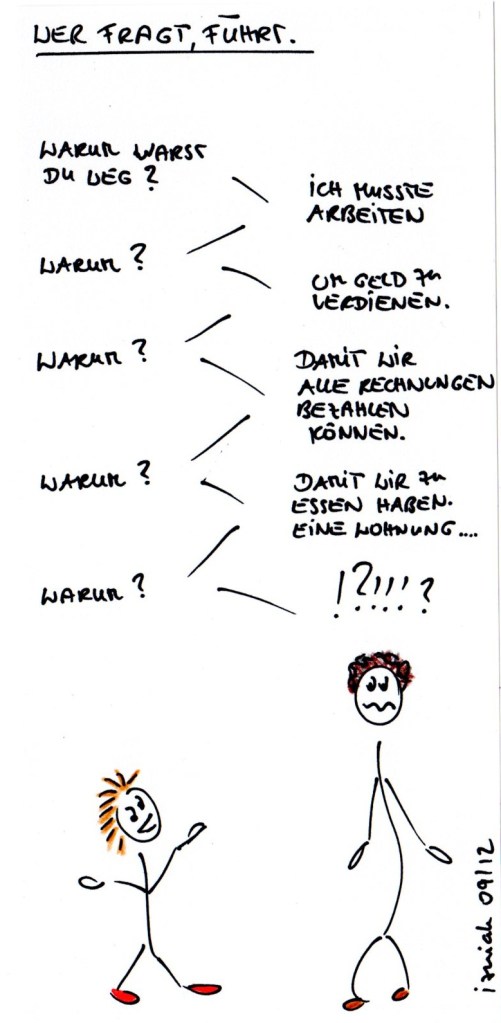 WER FRAGT, FÜHRT.
WARUM WARST
DU WEG?
ICH MUSSTE
ARBEITEN
WARUM?
UM GELD ZU
VERDIENEN.
WARUM?
DAMIT WIR
ALLE RECHNUNGEN
BEZAHLEN
KÖNNEN.
WARUM?
DAMIT WIR ZU
ESSEN HABEN.
EINE WOHNUNG....
WARUM?
!?!!!?
09/12